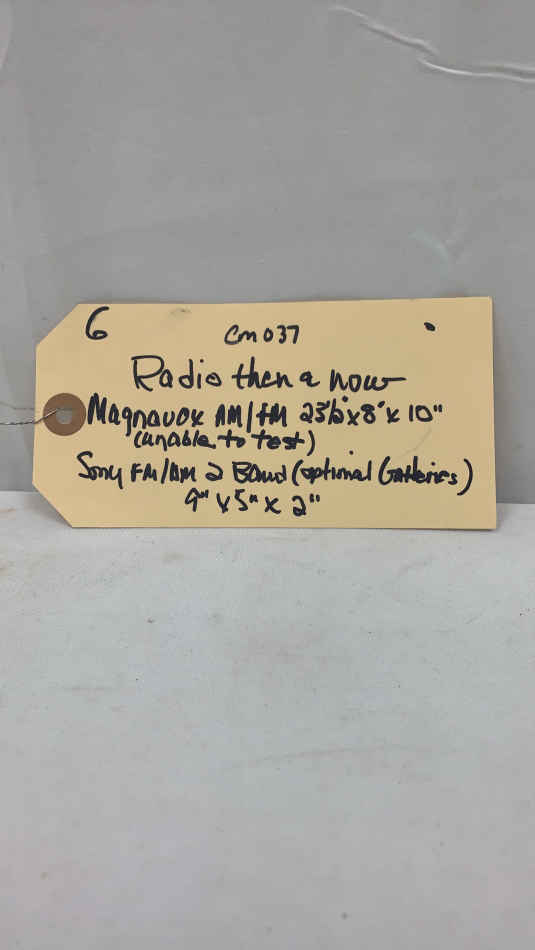 6
Cm037
Radio then & now
Magnavox AM/FM 23½"x8"x10"
(unable to test)
Sony FM/AM 2 Band (optional batteries)
9" x 5" x 2"